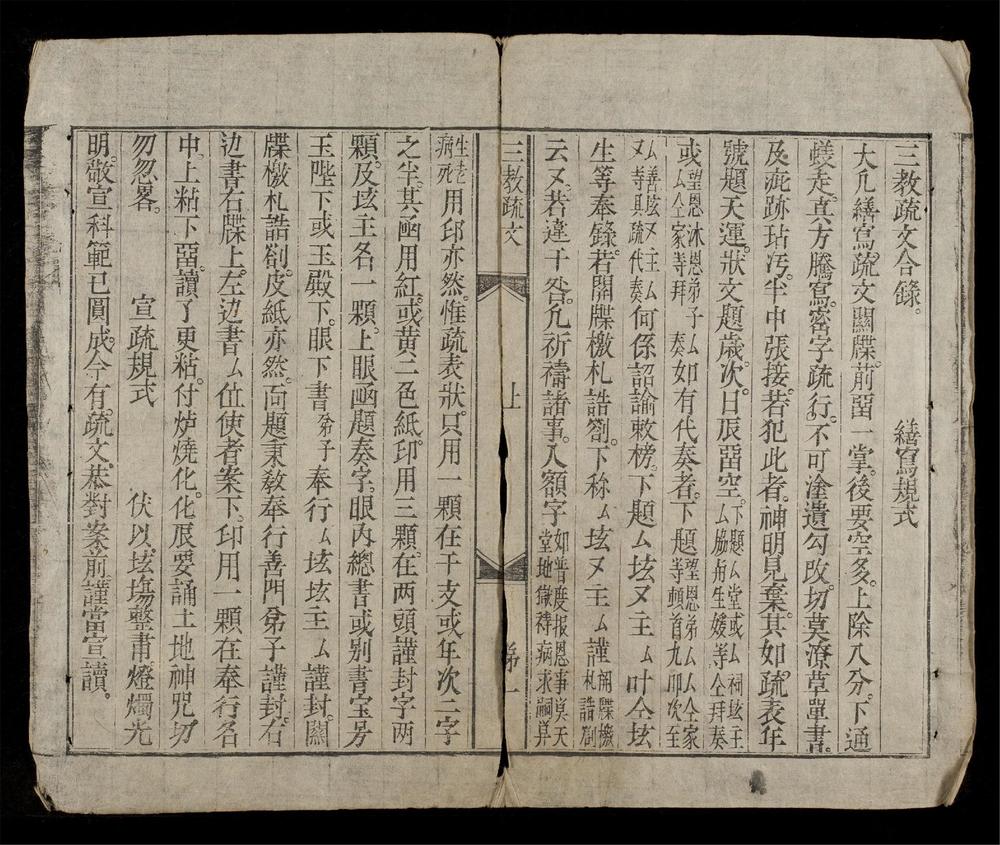 三教疏文合錄。　繕寫規式
大凢繕寫疏文關牒前畱一掌後要空多。上除八分。下通
蟻走。真方騰寫。密字疏行。不可塗遺勾改。切莫潦草單書。
及疵跡玷汚。半中張接。若犯此者。神明見棄。其如疏表年
號題天運。狀文題歲次。日辰畱空。下題厶堂或厶祠坛主厶脇舟生嫂等仝拜奏
或望恩沐恩弟子厶厶仝家等拜奏如有代奏者。下題望恩弟厶厶仝家等頓首九叩次至
厶善坛又主厶又寺具疏代奏何係詔諭敕榜。下題厶坛又主厶叶仝坛
生等奉錄。若關牒檄札誥劄。下称厶坛又主厶謹關牒檄札誥劄
云又。若違干咎。凢祈禱諸事。入額字如普度报恩事奠天堂地獄禱病求嗣昇
三教疏文　上　第一
生老病死用印亦然。惟疏表狀。只用一顆在干支或年次二字
之半。其凾用紅。或黄二色紙。印用三顆。在两頭謹封字两
顆。及坛主名一顆。上眼凾題奏字。眼内總書或别書宝号
玉陛下或玉殿下。眼下書弟子奉行厶坛坛主厶謹封。關
牒檄札誥劄。皮紙亦然。面題秉教奉行善門弟子謹封。右
边書右牒上。左边書厶位使者案下。印用一顆在奉行名
中。上粘下畱。讀了更粘。付炉燒化。化辰要誦土地神咒切
勿忽畧。　宣疏規式　伏以。坛塲整肅。燈燭光
明。敬宣科範已圓成。今有疏文。恭對案前謹當宣讀。